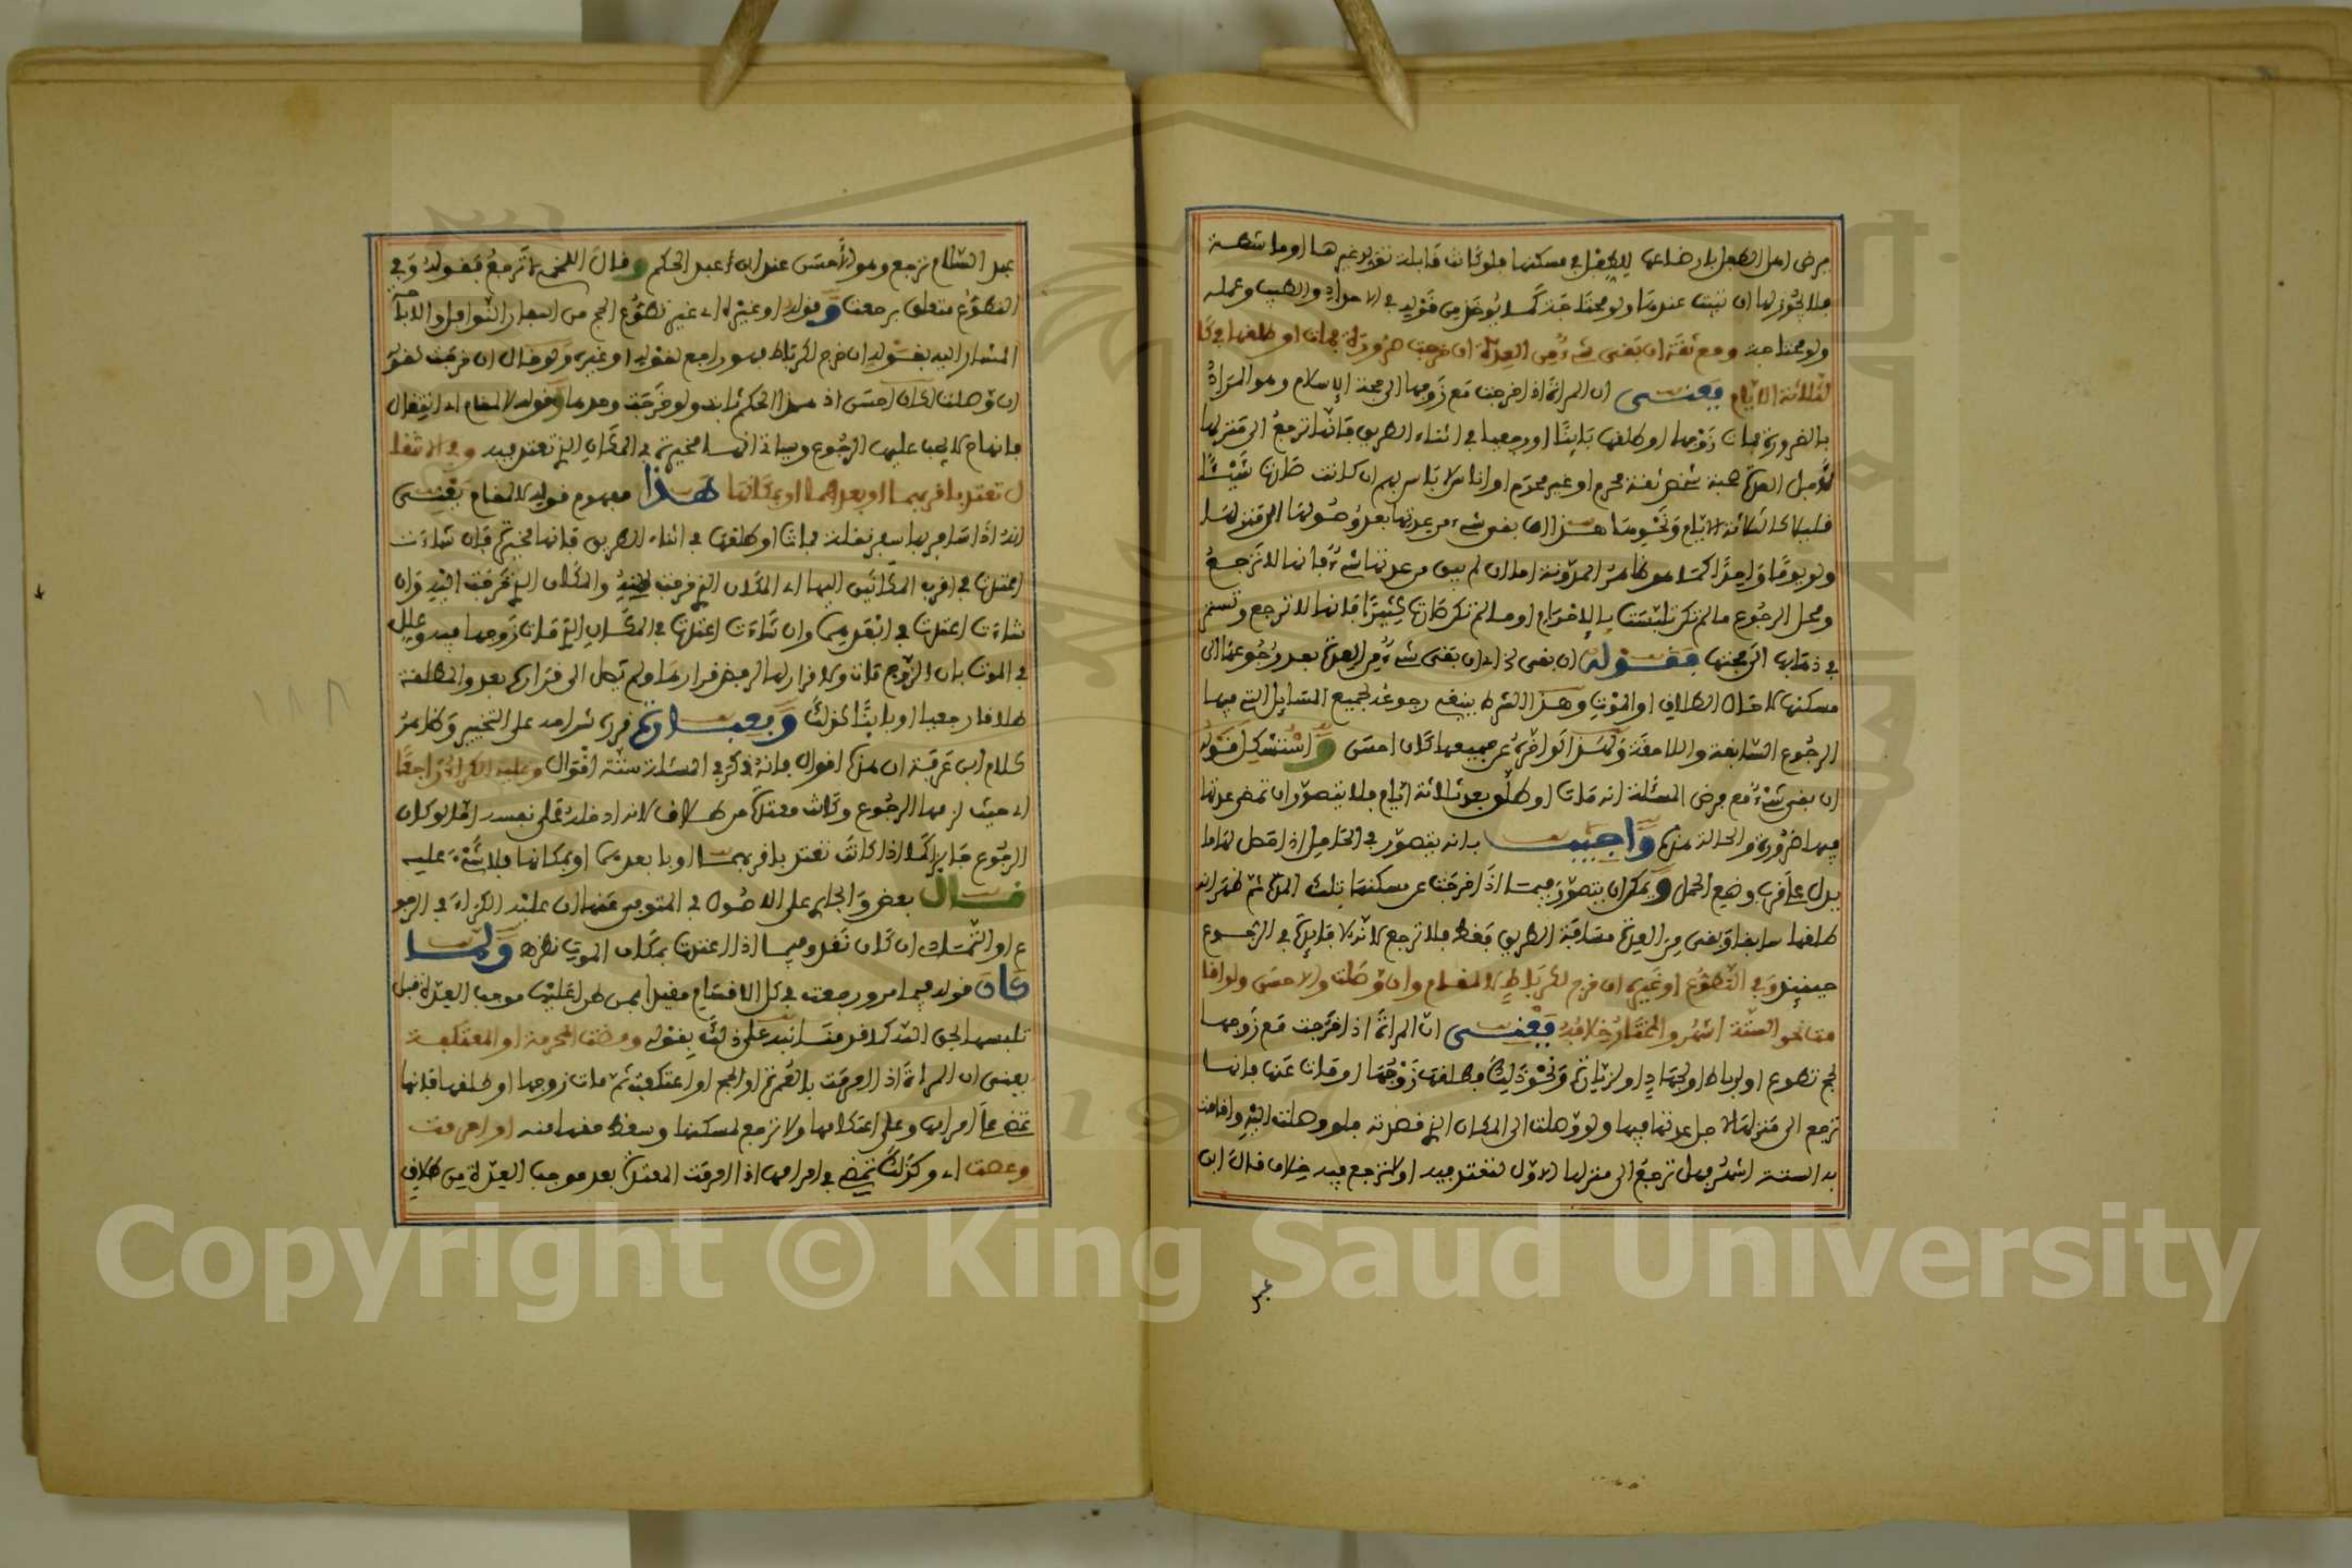 مرض اهل الطفل بارضاعها للطفل في مسكنها فلو كانت قابلة تولد غيرها او ماشطة
فلا يجوز لها ان تبيت عندها ولو محتاجة كما يوخذ من قوله في الاحداد والطيب وعمله
ولو محتاجة ومع ثقة ان بقى شيء من العدة ان خرجت ضرورة فمات او طلقها في كا
لثلاثة الايام يعنى ان المراة اذا خرجت مع زوجها الى حجة الاسلام وهو المراد
بالضرورة فمات زوجها او طلقها باينا او رجعيا في اثناء الطريق فانها ترجع الى منزلها
لاجل العدة صحبة شخص ثقة محرم او غير محرم او اناس لا باس بهم ان كانت طلقت شيئا
قليلا كالثلاثة الايام ونحوها هذا ان بقى شيء من عدتها بعد وصولها الى منزلها
ولو يوما واحدا كما هو ظاهر المدونة اما ان لم يبق من عدتها شيء فانها لا ترجع
ومحل الرجوع ما لم تكن تلبست بالاحرام او ما لم تكن حاملا كثيرا فانها لا ترجع وتستمر
في ذهابها الى حجتها فقوله ان بقى الخ اي ان بقى شيء من العدة بعد رجوعها الى
مسكنها لا حال الطلاق او الموت وهذا الشرط ينبغي رجوعه لجميع المسايل التي فيها
الرجوع السابقة واللاحقة ولهذا لو اخره عن جميعها كان احسن واستشكل قوله
ان بقى شيء مع فرض المسئلة انه مات او طلق بعد ثلاثة ايام فلا يتصور ان تمضى عدتها
فيها ضرورة والحالة هذه واجيب بانه يتصور في الحامل اذا حصل لها ما
يدل على قرب وضع الحمل ويمكن ان يتصور فيما اذا خرجت عن مسكنها تلك المدة ثم ظهر انه
طلقها سابقا وبقى من العدة مسافة الطريق فقط فلا ترجع لانه لا فايدة في الرجوع
حينيذ وفي التطوع او غيره ان خرج لكرباط لا لمقام وان وصلت والاحسن ولو اقا
مت نحو الستة اشهر والمختار خلافه يعنى ان المراة اذا خرجت مع زوجها
لحج تطوع او لرباط او لجهاد او لزيارة ونحو ذلك فطلقها زوجها او مات عنها فانها
ترجع الى منزلها لاجل عدتها فيها ولو وصلت الى المكان الذي قصدته فلو وصلت اليه واقامت
به الستة اشهر فهل ترجع الى منزلها الاول لتعتد فيه او لا ترجع فيه خلاف قال ابن
عبد
عبد السلام ترجع وهو الاحسن عند ابن عبد الحكم وقال اللخمي لا ترجع فقوله وفي
التطوع متعلق برجعت وقوله او غيره اي غير تطوع الحج من السفار النوافل والاباحة
المشار اليه بقوله ان خرج لكرباط فهو راجع لقوله او غيره ولو قال ان خرجت لكن
ان وصلت لكان احسن اذ هذا الحكم ثابت ولو خرجت وحدها وقوله لا لمقام اي انتقال
فانها ح لا يجب عليها الرجوع وسياتي انها مخيرة في المكان الذي تعتد فيه وفي الانتقا
ل تعتد باقربهما او بعدهما او بمكانها هذا مفهوم قوله لا لمقام يعنى
انه اذا سافر بها سفر نقلة فمات او طلقها في اثناء الطريق فانها مخيرة فان شاءت
اعتدت في اقرب المكانين اليها اي المكان الذي خرجت منه والمكان الذي خرجت اليه وان
شاءت اعتدت في ابعدهما وان شاءت اعتدت في المكان الذي مات زوجها فيه وعلل
في الموت بان الزوج مات ولا قرار لها لرفض قرارها ولم تصل الى قرارها بعد والمطلقة
طلاقا رجعيا او باينا كذلك وبعبارة قرر شراحه على التخيير وظاهر
كلام ابن عرفة ان هذه اقوال فانه ذكر في المسئلة ستة اقوال وعليه الكراء راجعا
اي حيث لزمها الرجوع وكانت معتدة من طلاق لانه ادخله على نفسه اما لو كان
الرجوع جايزا كما اذا كانت تعتد باقربهما او بابعدهما او بمكانها فلا شيء عليه
قال بعض والجاري على الاصول في المتوفى عنها ان عليه الكراء في الرجو
ع او التمسك ان كان نقد وفيما اذا اعتدت بمكان الموت نظره ولما
كان قوله فيما مر ورجعت في كل الاقسام مقيدا بمن طرا عليها موجب العدة قبل
تلبسها بحق الله كلا قد منا نبه على ذلك بقوله ومضت المحرمة او المعتكفة
يعنى ان المراة اذا احرمت بالعمرة او الحج او اعتكفت ثم مات زوجها او طلقها فانها
تمضى على احرامها وعلى اعتكافها ولا ترجع لمسكنها وسقط حقها منه او احرمت
وعصت اي وكذلك تمضى في احرامها اذا احرمت المعتدة بعد موجب العدة من طلاق